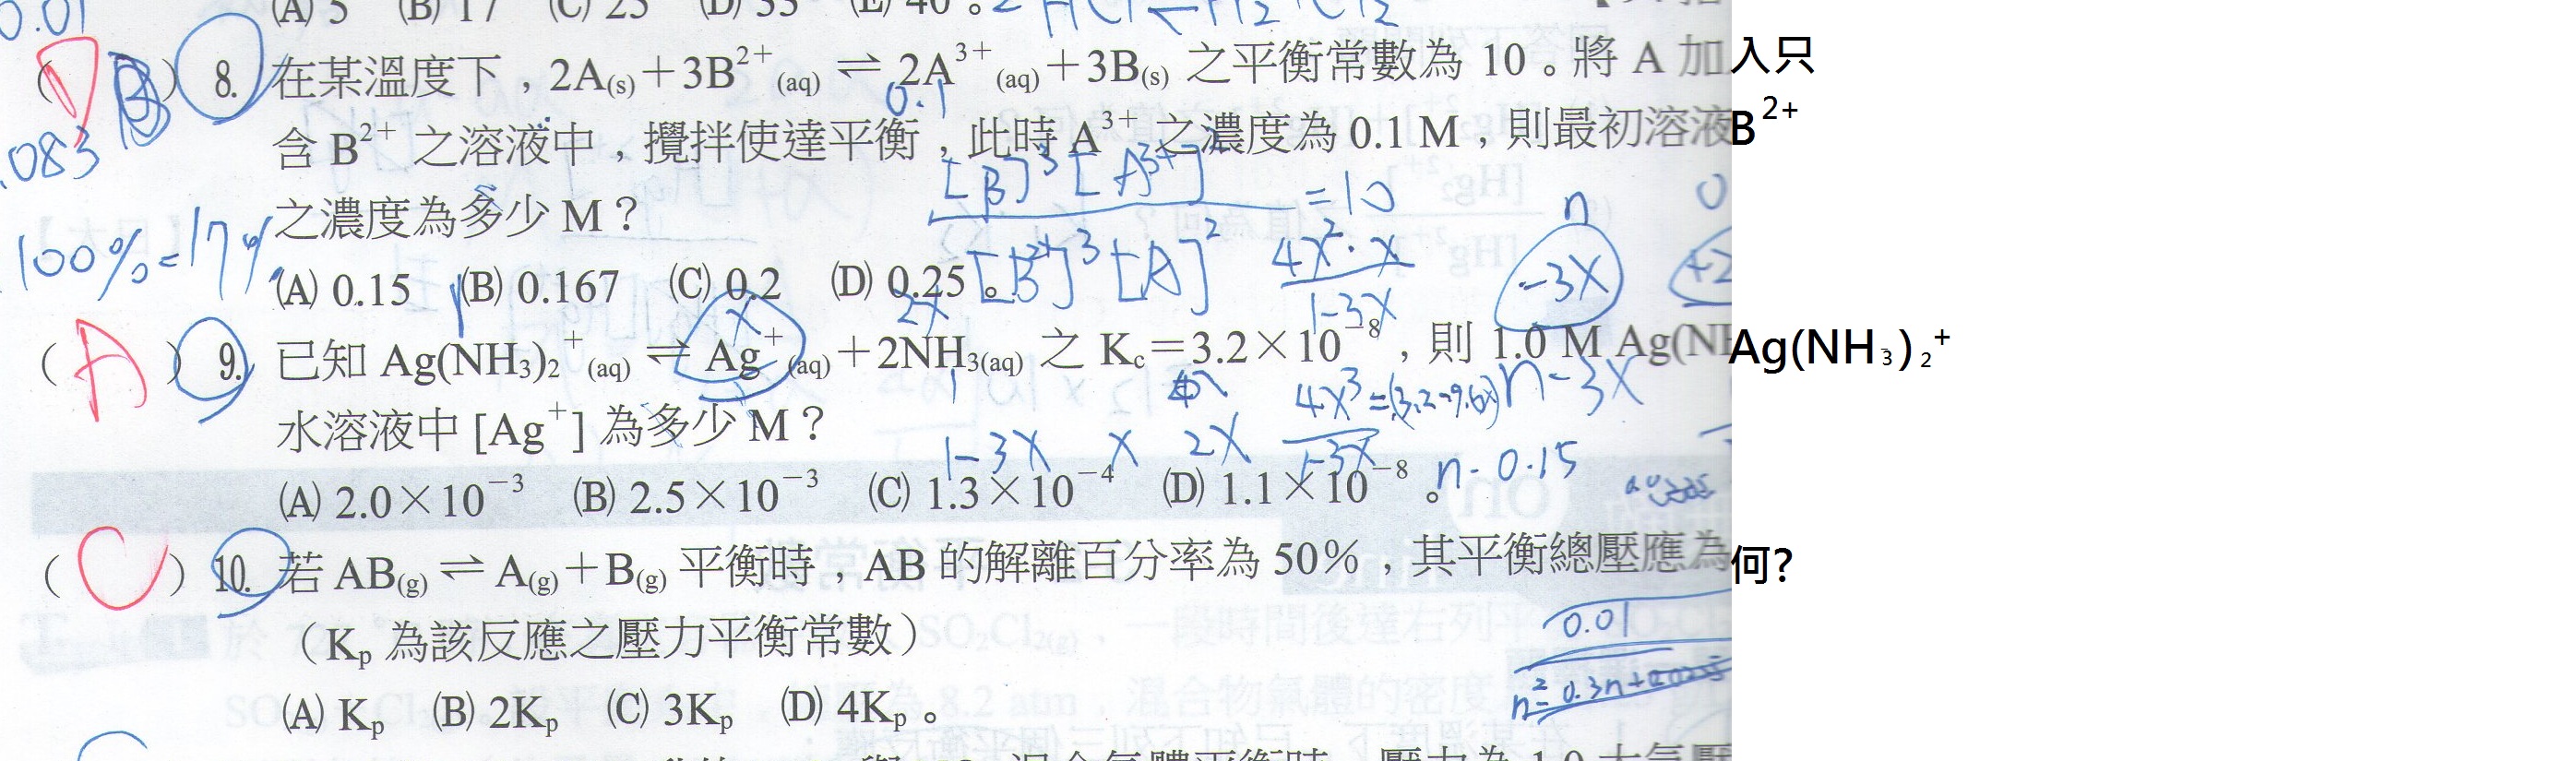 0.01 (A) 5 (B) 17 (C) 25 (D) 33 (E) 40。
( B ) 8. 在某溫度下，2A(s)＋3B²⁺(aq) ⇌ 2A³⁺(aq)＋3B(s) 之平衡常數為 10。將 A 加入只
0.1
含 B²⁺ 之溶液中，攪拌使達平衡，此時 A³⁺ 之濃度為 0.1 M，則最初溶液B²⁺
.083
[B]³[A³⁺]² = 10
之濃度為多少 M？
n 0
100% = 17%
[B²⁺]³[A]²
4x²·x
1-3x
-3x +2
(A) 0.15 (B) 0.167 (C) 0.2 (D) 0.25。
x 2x
( A ) 9. 已知 Ag(NH₃)₂⁺(aq) ⇌ Ag⁺(aq)＋2NH₃(aq) 之 Kc＝3.2×10⁻⁸，則 1.0 M Ag(NH₃)₂⁺
4x³ = (3.2-9.6x) n-3x
水溶液中［Ag⁺］為多少 M？
1-3x x 2x 1-3x n-0.15
(A) 2.0×10⁻³ (B) 2.5×10⁻³ (C) 1.3×10⁻⁴ (D) 1.1×10⁻⁸。
( C ) 10. 若 AB(g) ⇌ A(g)＋B(g) 平衡時，AB 的解離百分率為 50％，其平衡總壓應為何?
0.01
（Kp 為該反應之壓力平衡常數）
n²-0.3n+
(A) Kp (B) 2Kp (C) 3Kp (D) 4Kp。